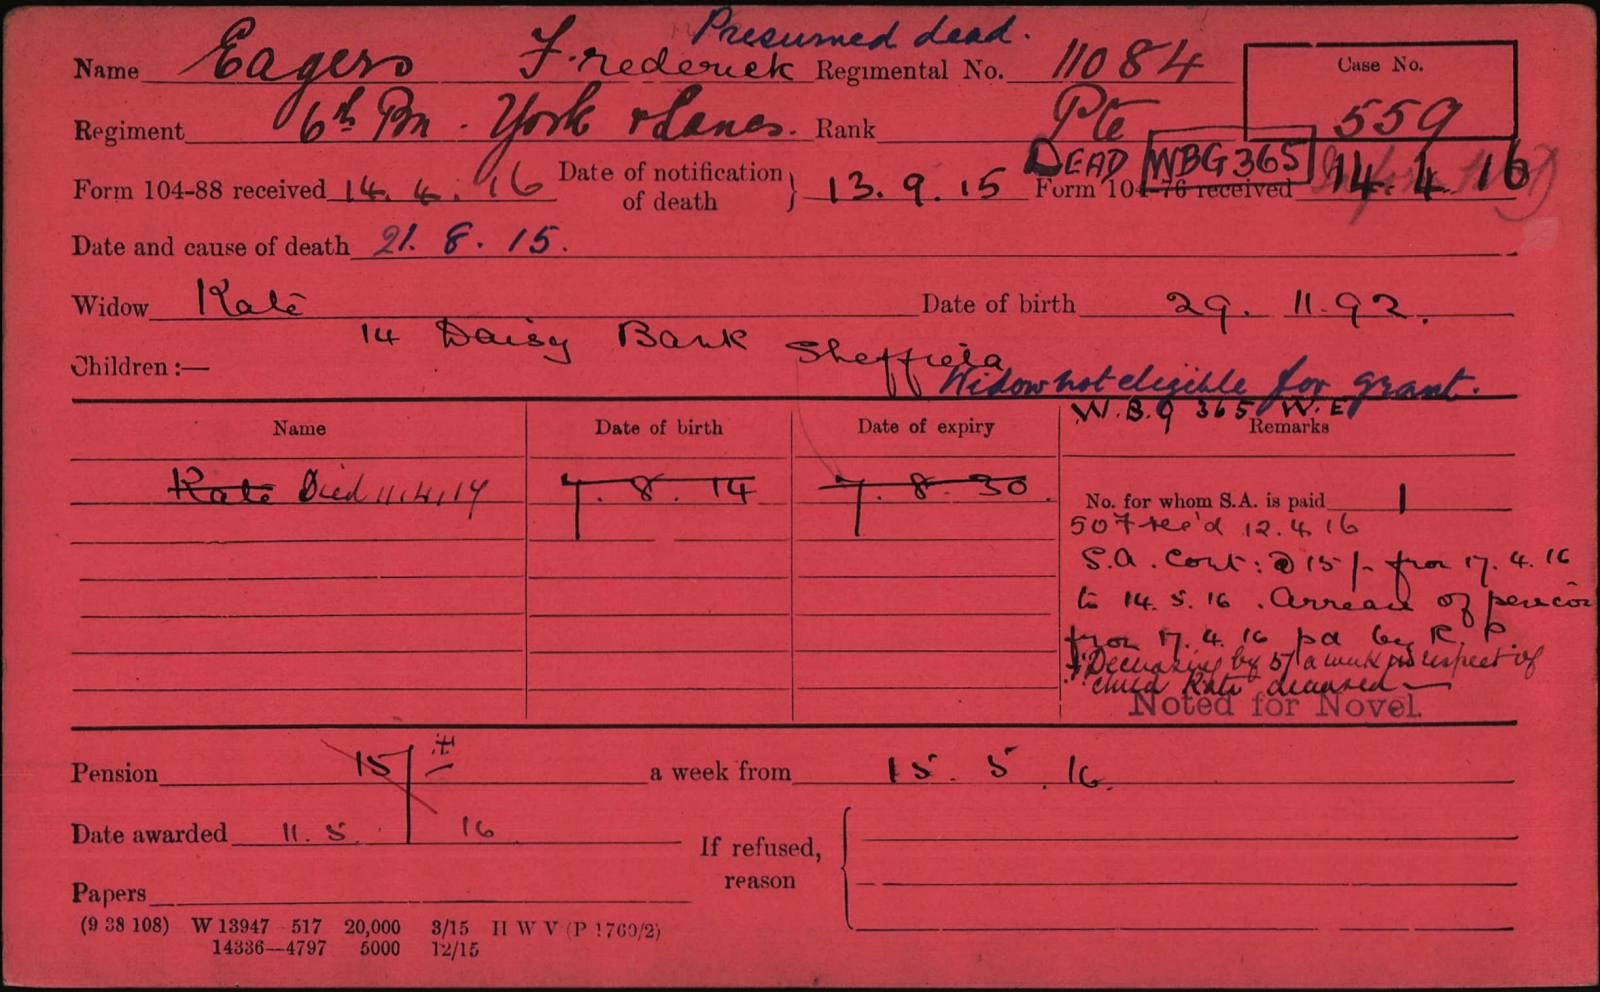 Presumed dead.
Name Eagers Frederick Regimental No. 11084 Case No.
559
Regiment 6th Bn. York & Lancs. Rank Pte
DEAD WBG365
Form 104-88 received 14.4.16 Date of notification of death } 13.9.15 Form 104-76 received 14.4.16
Date and cause of death 21.8.15.
Widow Kate Date of birth 29.11.92.
14 Daisy Bank Sheffield
Children :—
Widow not eligible for grant.
W.B.G 365 W.E
Name Date of birth Date of expiry Remarks
Kate Died 11.4.17 7.8.14 7.8.30. No. for whom S.A. is paid 1
507 rec'd 12.4.16
S.A. Cont: @ 15/- from 17.4.16
to 14.5.16. Arrears of pension
from 17.4.16 pd by R.P.
Decreasing by 5/ a week in respect of
child Kate deceased
Noted for Novel.
Pension 15/- a week from 15.5.16.
Date awarded 11.5.16
If refused,
reason
Papers
(9 38 108) W 13947 517 20,000 3/15 H W V (P 1760/2)
14336—4797 5000 12/15